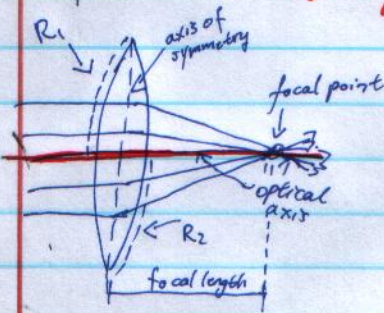 R1
axis of
symmetry
focal point
optical
axis
R2
focal length